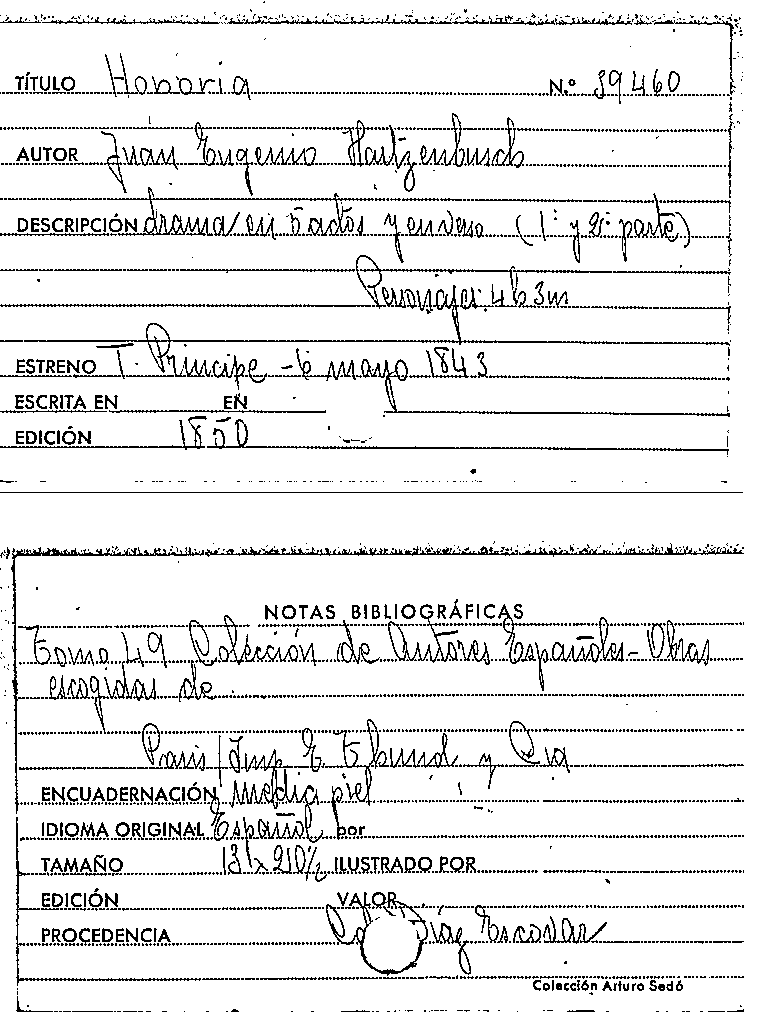 TÍTULO Honoria N.º 39460
AUTOR Juan Eugenio Hartzenbusch
DESCRIPCIÓN drama en 5 actos y en verso (1ª y 2ª parte)
Personajes: 4 h 3 m
ESTRENO T. Principe - 6 mayo 1843
ESCRITA EN EN
EDICIÓN 1850
NOTAS BIBLIOGRÁFICAS
Tomo 49 Colección de Autores Españoles - Obras
escogidas de
Paris / Imp E Thunot y Cia
ENCUADERNACIÓN media piel
IDIOMA ORIGINAL Español por
TAMAÑO ILUSTRADO POR
EDICIÓN VALOR
PROCEDENCIA Díaz Escovar
Colección Arturo Sedó